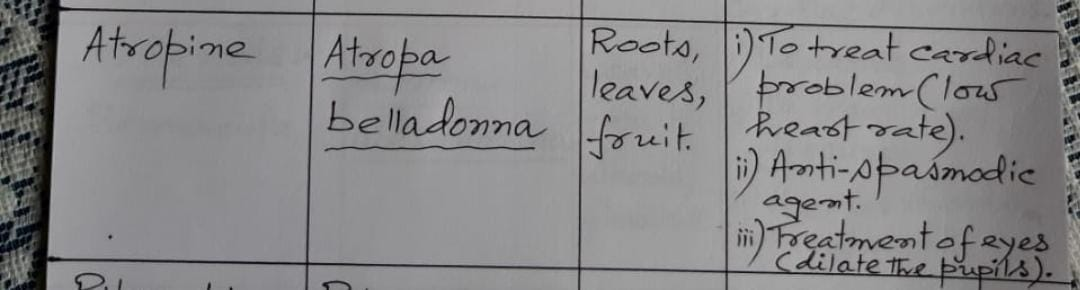 Atropine
Atropa
belladonna
Roots,
leaves,
fruit.
i) To treat cardiac
problem (low
heart rate).
ii) Anti-spasmodic
agent.
iii) Treatment of eyes
(dilate the pupils).